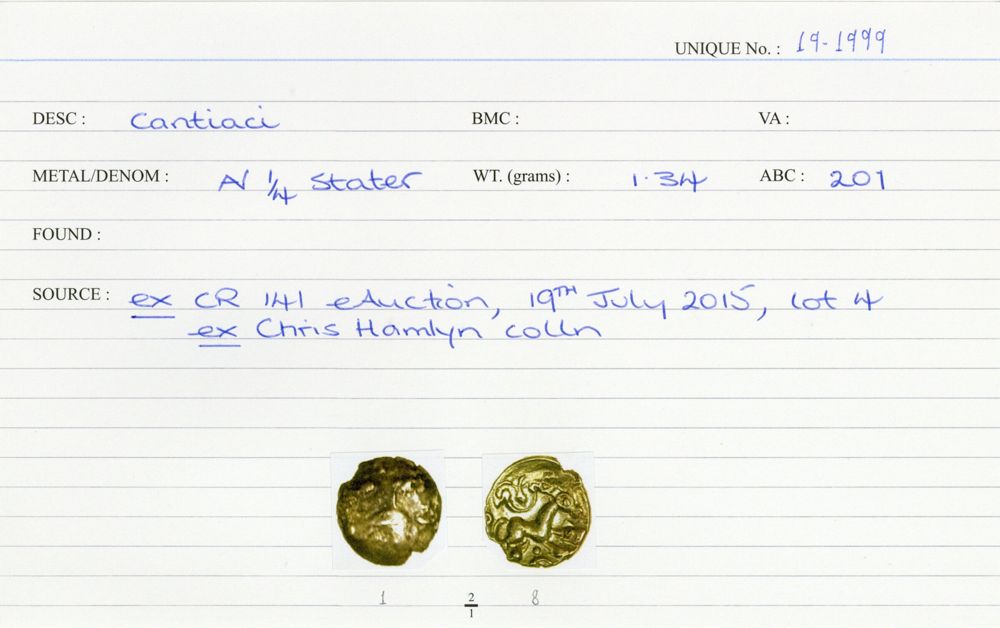 UNIQUE No. : 19-1999
DESC : Cantiaci BMC : VA :
METAL/DENOM : AV 1/4 Stater WT. (grams) : 1.34 ABC : 201
FOUND :
SOURCE : ex CR 141 eAuction, 19TH July 2015, lot 4
ex Chris Hamlyn colln
1 2/1 8